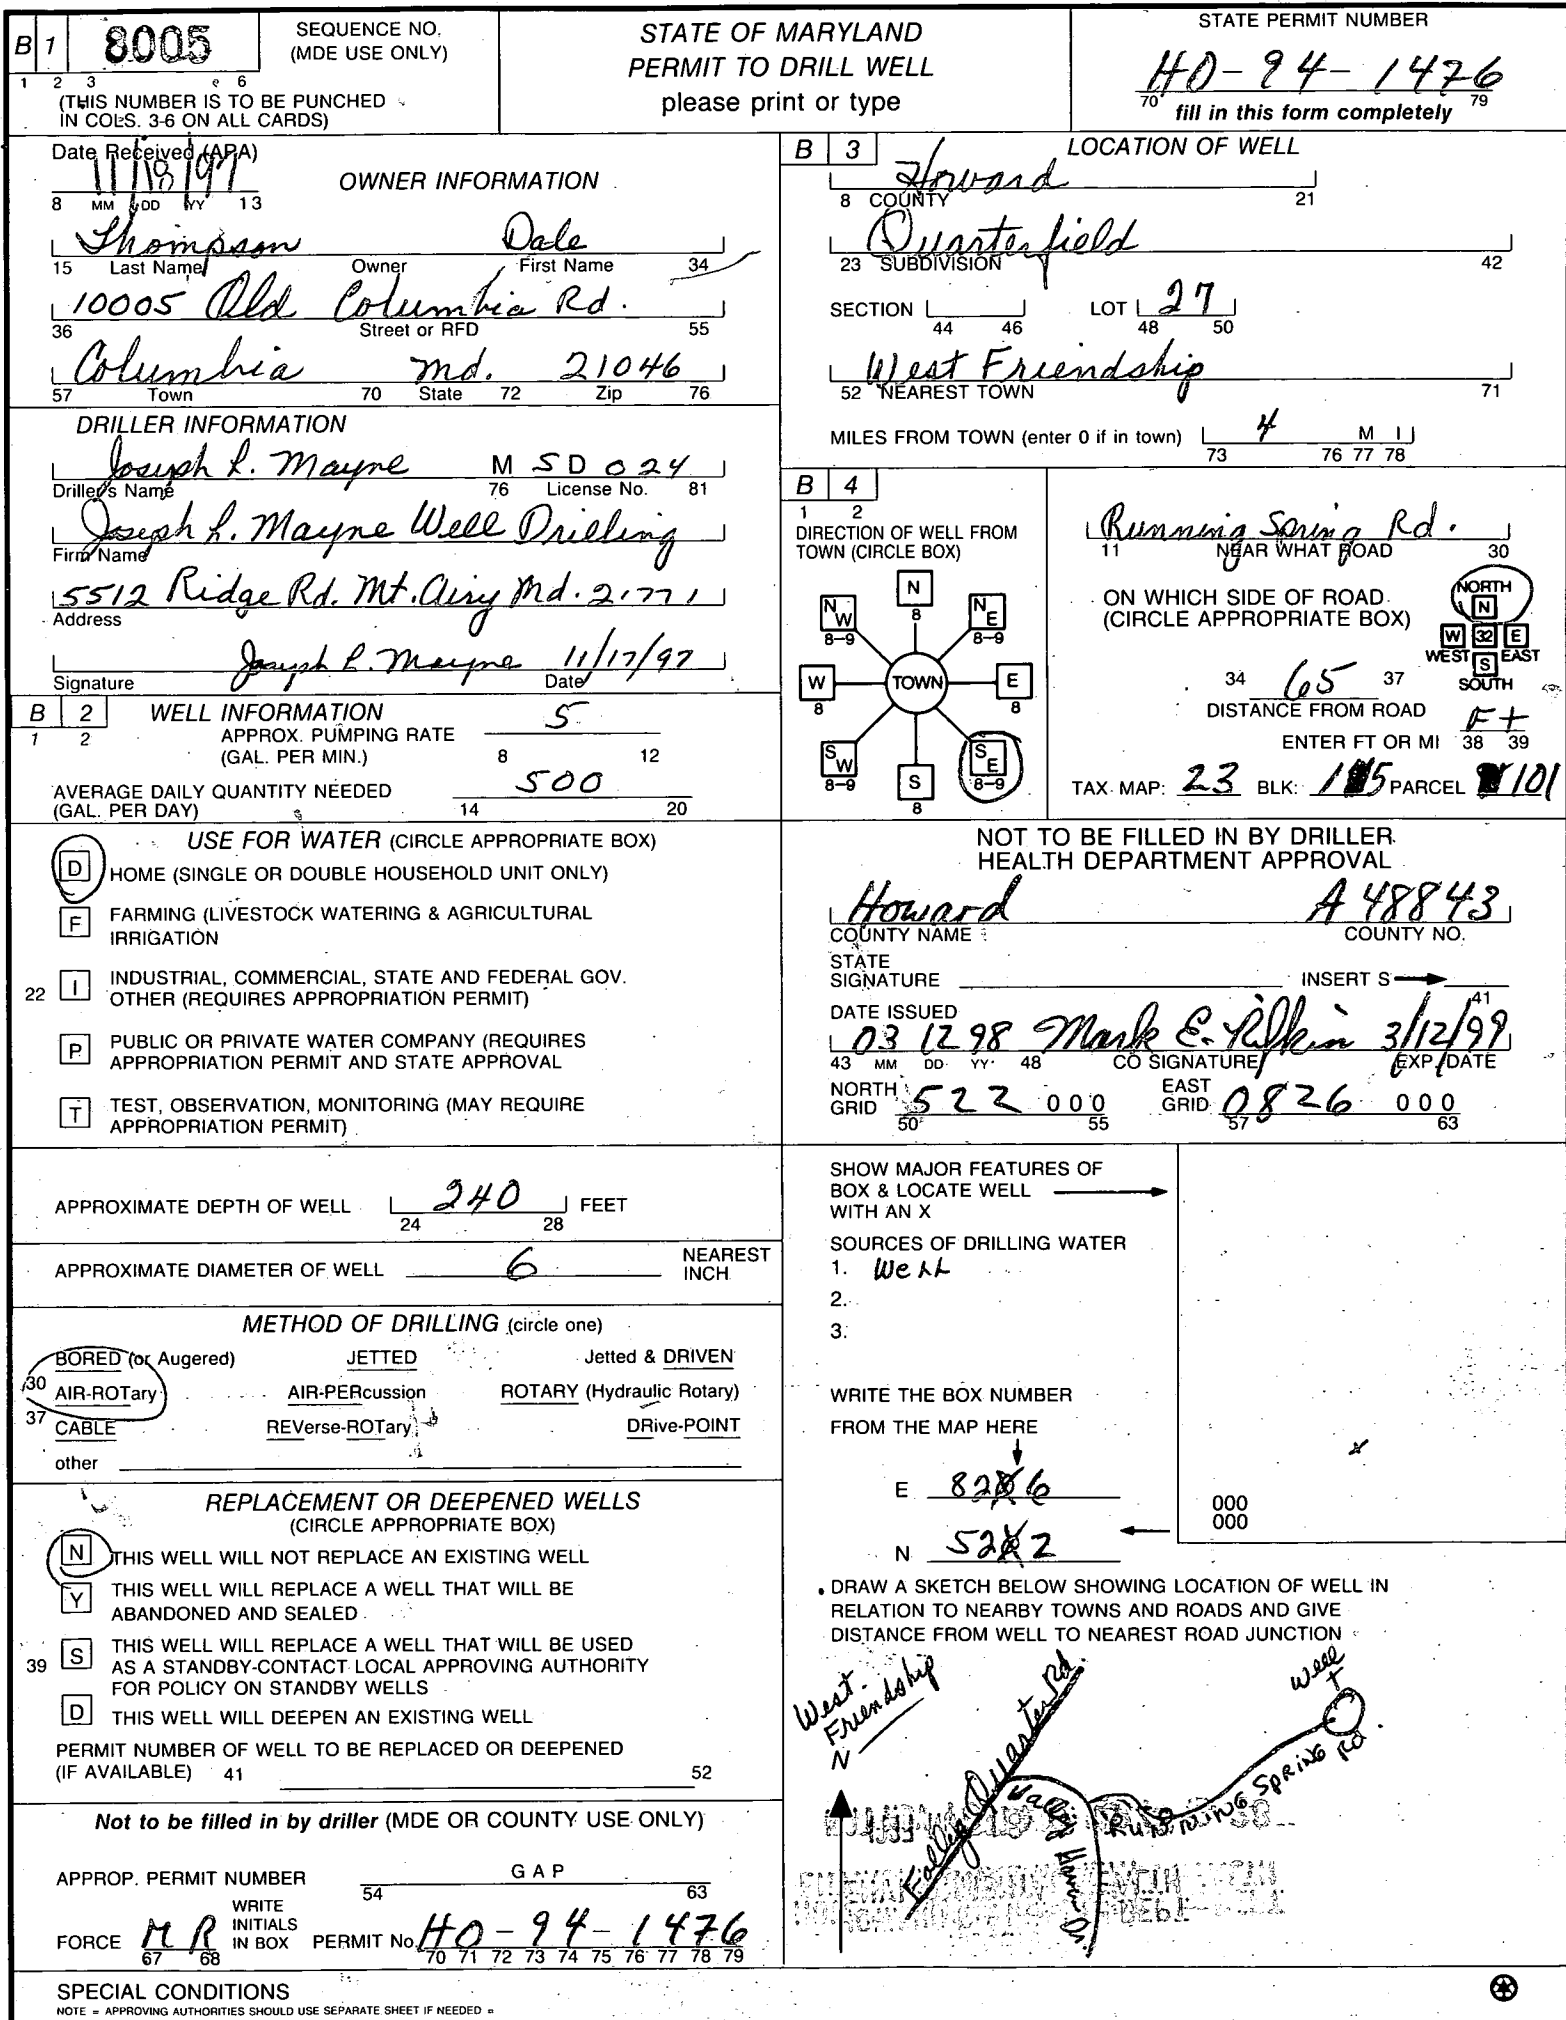 B 1 8005 SEQUENCE NO. (MDE USE ONLY)
1 2 3 6
(THIS NUMBER IS TO BE PUNCHED
IN COLS. 3-6 ON ALL CARDS)
STATE OF MARYLAND
PERMIT TO DRILL WELL
please print or type
STATE PERMIT NUMBER
HO-94-1476
70 79
fill in this form completely
Date Received (APA)
11/18/97
8 MM DD YY 13
OWNER INFORMATION
Thompson Dale
15 Last Name Owner First Name 34
10005 Old Columbia Rd.
36 Street or RFD 55
Columbia Md. 21046
57 Town 70 State 72 Zip 76
DRILLER INFORMATION
Joseph L. Mayne M S D 024
Driller's Name 76 License No. 81
Joseph L. Mayne Well Drilling
Firm Name
5512 Ridge Rd. Mt. Airy Md. 21771
Address
Joseph L. Mayne 11/17/97
Signature Date
B 2 WELL INFORMATION
1 2
APPROX. PUMPING RATE 5
(GAL. PER MIN.) 8 12
AVERAGE DAILY QUANTITY NEEDED 500
(GAL. PER DAY) 14 20
USE FOR WATER (CIRCLE APPROPRIATE BOX)
D HOME (SINGLE OR DOUBLE HOUSEHOLD UNIT ONLY)
F FARMING (LIVESTOCK WATERING & AGRICULTURAL
IRRIGATION
22 I INDUSTRIAL, COMMERCIAL, STATE AND FEDERAL GOV.
OTHER (REQUIRES APPROPRIATION PERMIT)
P PUBLIC OR PRIVATE WATER COMPANY (REQUIRES
APPROPRIATION PERMIT AND STATE APPROVAL
T TEST, OBSERVATION, MONITORING (MAY REQUIRE
APPROPRIATION PERMIT)
APPROXIMATE DEPTH OF WELL 240 FEET
24 28
APPROXIMATE DIAMETER OF WELL 6 NEAREST
INCH
METHOD OF DRILLING (circle one)
BORED (or Augered) JETTED Jetted & DRIVEN
30 AIR-ROTary AIR-PERcussion ROTARY (Hydraulic Rotary)
37 CABLE REVerse-ROTary DRive-POINT
other
REPLACEMENT OR DEEPENED WELLS
(CIRCLE APPROPRIATE BOX)
N THIS WELL WILL NOT REPLACE AN EXISTING WELL
Y THIS WELL WILL REPLACE A WELL THAT WILL BE
ABANDONED AND SEALED
39 S THIS WELL WILL REPLACE A WELL THAT WILL BE USED
AS A STANDBY-CONTACT LOCAL APPROVING AUTHORITY
FOR POLICY ON STANDBY WELLS
D THIS WELL WILL DEEPEN AN EXISTING WELL
PERMIT NUMBER OF WELL TO BE REPLACED OR DEEPENED
(IF AVAILABLE) 41 52
Not to be filled in by driller (MDE OR COUNTY USE ONLY)
APPROP. PERMIT NUMBER G A P
54 63
FORCE M R WRITE INITIALS IN BOX PERMIT No. HO-94-1476
67 68 70 71 72 73 74 75 76 77 78 79
SPECIAL CONDITIONS
NOTE = APPROVING AUTHORITIES SHOULD USE SEPARATE SHEET IF NEEDED =
B 3 LOCATION OF WELL
Howard
8 COUNTY 21
Quarterfield
23 SUBDIVISION 42
SECTION LOT 27
44 46 48 50
West Friendship
52 NEAREST TOWN 71
MILES FROM TOWN (enter 0 if in town) 4 M I
73 76 77 78
B 4
1 2
DIRECTION OF WELL FROM
TOWN (CIRCLE BOX)
N 8
NW 8-9 NE 8-9
W 8 TOWN E 8
SW 8-9 SE 8-9
S 8
Running Spring Rd.
11 NEAR WHAT ROAD 30
ON WHICH SIDE OF ROAD
(CIRCLE APPROPRIATE BOX)
NORTH
N
W 32 E
WEST EAST
S
SOUTH
34 65 37
DISTANCE FROM ROAD Ft
ENTER FT OR MI 38 39
TAX MAP: 23 BLK: 15 PARCEL 101
NOT TO BE FILLED IN BY DRILLER
HEALTH DEPARTMENT APPROVAL
Howard A 48843
COUNTY NAME COUNTY NO.
STATE
SIGNATURE INSERT S
41
DATE ISSUED
03 12 98 Mark E. Rifkin 3/12/99
43 MM DD YY 48 CO SIGNATURE EXP. DATE
NORTH GRID 522 000 EAST GRID 0826 000
50 55 57 63
SHOW MAJOR FEATURES OF
BOX & LOCATE WELL
WITH AN X
SOURCES OF DRILLING WATER
1. Well
2.
3.
WRITE THE BOX NUMBER
FROM THE MAP HERE
X
E 826
N 522
000
000
DRAW A SKETCH BELOW SHOWING LOCATION OF WELL IN
RELATION TO NEARBY TOWNS AND ROADS AND GIVE
DISTANCE FROM WELL TO NEAREST ROAD JUNCTION
West Friendship
N
Folly Quarter Rd.
Haven Dr.
Running Spring Rd.
Well